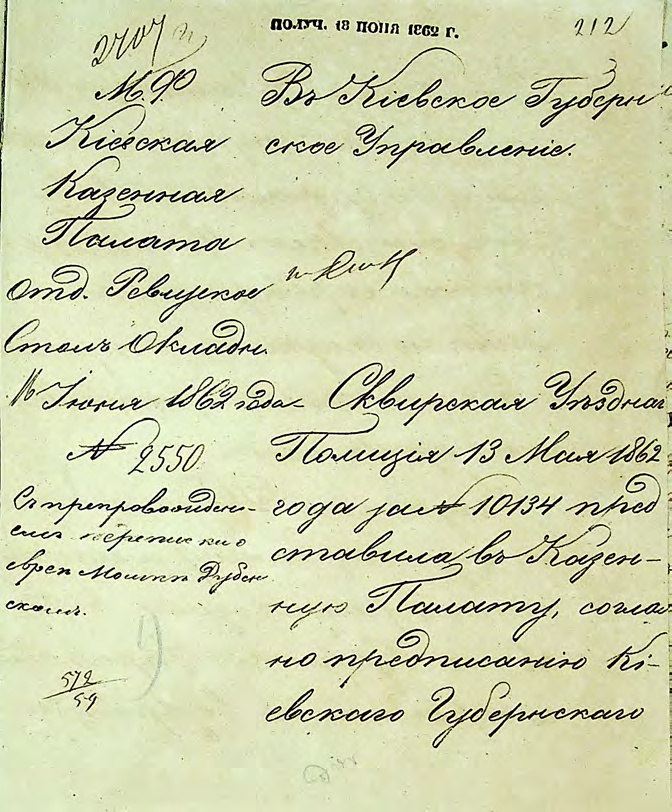 ПОЛУЧ. 18 ІЮНЯ 1862 Г.
212
2707
3
М.Ф.
Кіевская
Казенная
Палата
Отд. Ревизское
Столъ Окладн.
16 Іюня 1862 года
№ 2550
Съ препровожден-
емъ переписки о
евреѣ Мошкѣ Дубен
скомъ.
572
59
Въ Кіевское Губерн
ское Управленіе.
Сквирская Уѣздная
Полиція 13 Мая 1862
года за № 10134 пред
ставила въ Казен-
ную Палату, соглас
но предписанію Кі-
евскаго Губернскаго